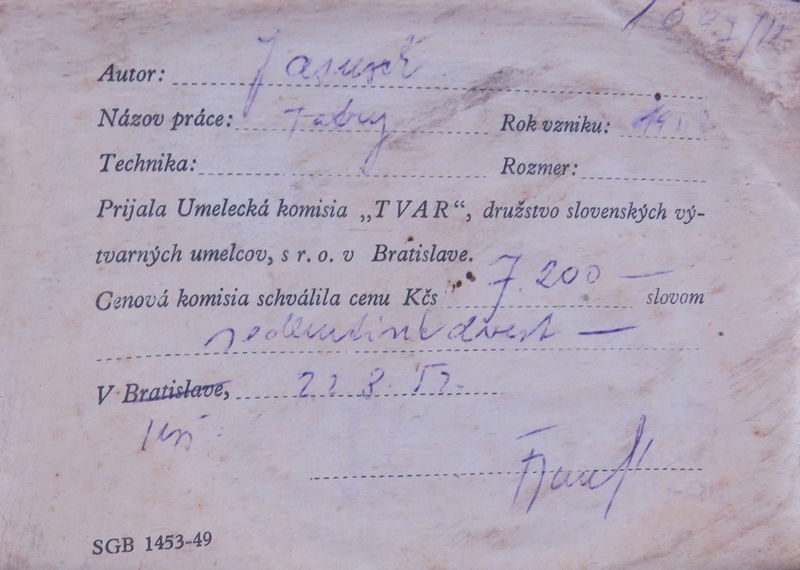 Autor: Jasusch
Názov práce: Tatry Rok vzniku:
Technika: Rozmer:
Prijala Umelecká komisia „TVAR“, družstvo slovenských vý-
tvarných umelcov, s r. o. v Bratislave.
Cenová komisia schválila cenu Kčs 7.200 — slovom
sedemtisícdvesto —
V Bratislave, 22.8.52.
SGB 1453-49